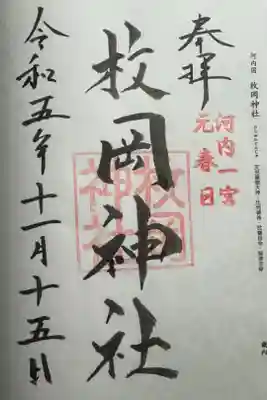 河内国 枚岡神社
奉拝
河内一宮
元春日
枚岡神社
枚岡
神社
令和五年十一月十五日